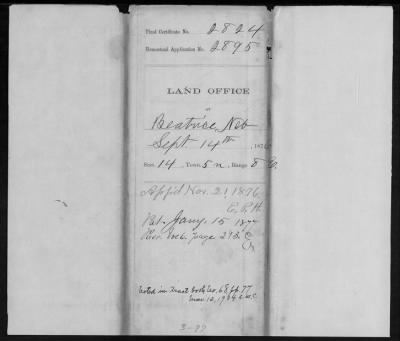 Final Certificate No. 2824
Homestead Application No. 2895
LAND OFFICE
at
Beatrice, Neb
Sept. 14th, 1876
Sec. 14, Town 5 n, Range 8
App'd Nov. 21 1876
Pat. Jany. 15 1877
Rec. page 292
Noted in Tract Book 68 pp 77
12, 1904
3-97